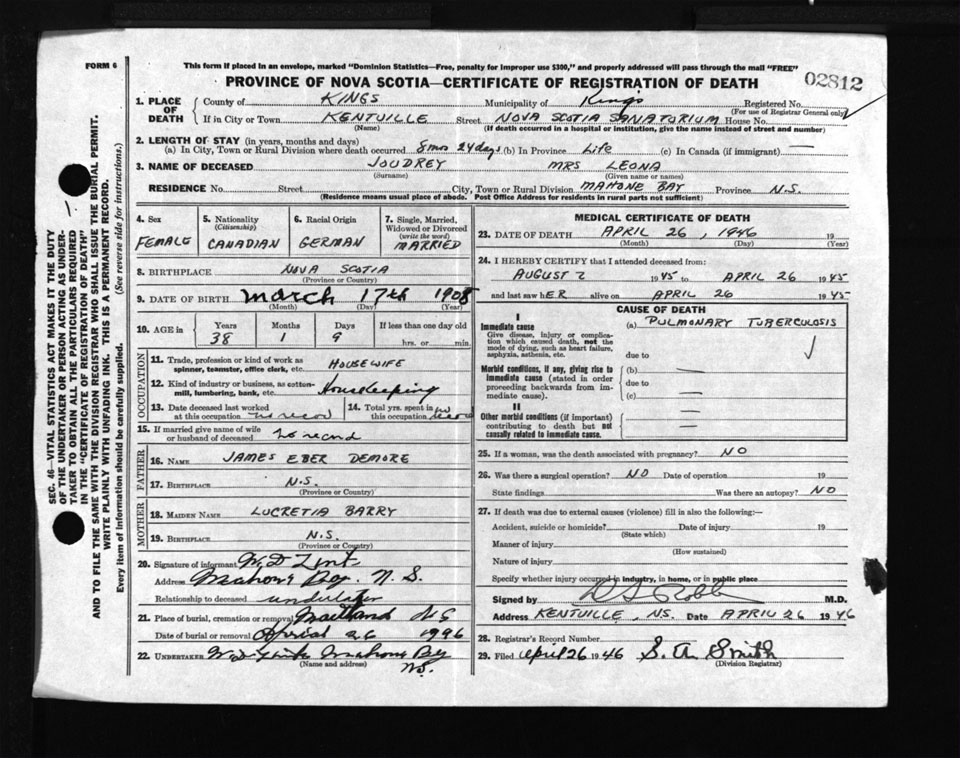 FORM 6
This form if placed in an envelope, marked "Dominion Statistics—Free, penalty for improper use $300," and properly addressed will pass through the mail "FREE"
PROVINCE OF NOVA SCOTIA—CERTIFICATE OF REGISTRATION OF DEATH
02812
1. PLACE OF DEATH County of KINGS Municipality of Kings Registered No.
(For use of Registrar General only)
If in City or Town KENTVILLE Street NOVA SCOTIA SANATORIUM House No.
(Name) (If death occurred in a hospital or institution, give the name instead of street and number)
2. LENGTH OF STAY (in years, months and days)
(a) In City, Town or Rural Division where death occurred 8 mos 24 days (b) In Province Life (c) In Canada (if immigrant) —
3. NAME OF DECEASED JOUDREY MRS LEONA
(Surname) (Given name or names)
RESIDENCE No. Street City, Town or Rural Division MAHONE BAY Province N.S.
(Residence means usual place of abode. Post Office Address for residents in rural parts not sufficient)
4. Sex FEMALE
5. Nationality (Citizenship) CANADIAN
6. Racial Origin GERMAN
7. Single, Married, Widowed or Divorced (write the word) MARRIED
8. BIRTHPLACE NOVA SCOTIA
(Province or Country)
9. DATE OF BIRTH March 17th 1908
(Month) (Day) (Year)
10. AGE in Years Months Days If less than one day old
38 1 9 hrs. or min.
OCCUPATION
11. Trade, profession or kind of work as spinner, teamster, office clerk, etc. HOUSEWIFE
12. Kind of industry or business, as cotton-mill, lumbering, bank, etc. Housekeeping
13. Date deceased last worked at this occupation
14. Total yrs. spent in this occupation
15. If married give name of wife or husband of deceased no record
FATHER
16. NAME JAMES EBER DEMORE
17. BIRTHPLACE N.S.
(Province or Country)
MOTHER
18. MAIDEN NAME LUCRETIA BARRY
19. BIRTHPLACE N.S.
(Province or Country)
20. Signature of informant W.D Zint
Address Mahone Bay. N.S.
Relationship to deceased
21. Place of burial, cremation or removal Maitland N S
Date of burial or removal April 26 1946
22. UNDERTAKER Mahone Bay
(Name and address) NS.
MEDICAL CERTIFICATE OF DEATH
23. DATE OF DEATH APRIL 26, 1946 19
(Month) (Day) (Year)
24. I HEREBY CERTIFY that I attended deceased from:
AUGUST 2 1945 to APRIL 26 1945
and last saw hER alive on APRIL 26 1945
CAUSE OF DEATH
I
Immediate cause
Give disease, injury or complication which caused death, not the mode of dying, such as heart failure, asphyxia, asthenia, etc.
(a) PULMONARY TUBERCULOSIS
due to
Morbid conditions, if any, giving rise to immediate cause (stated in order proceeding backwards from immediate cause).
(b) —
due to
(c) —
II
Other morbid conditions (if important) contributing to death but not causally related to immediate cause.
25. If a woman, was the death associated with pregnancy? NO
26. Was there a surgical operation? NO Date of operation 19
State findings Was there an autopsy? NO
27. If death was due to external causes (violence) fill in also the following:—
Accident, suicide or homicide? Date of injury 19
(State which)
Manner of injury
(How sustained)
Nature of injury
Specify whether injury occurred in industry, in home, or in public place
Signed by M.D.
Address KENTVILLE, NS. Date APRIL 26 1946
28. Registrar's Record Number
29. Filed April 26 1946 S. A. Smith
(Division Registrar)
SEC. 46—VITAL STATISTICS ACT MAKES IT THE DUTY
OF THE UNDERTAKER OR PERSON ACTING AS UNDER-
TAKER TO OBTAIN ALL THE PARTICULARS REQUIRED
IN THE "CERTIFICATE OF REGISTRATION OF DEATH"
AND TO FILE THE SAME WITH THE DIVISION REGISTRAR WHO SHALL ISSUE THE BURIAL PERMIT.
WRITE PLAINLY WITH UNFADING INK. THIS IS A PERMANENT RECORD.
Every item of information should be carefully supplied. (See reverse side for instructions.)